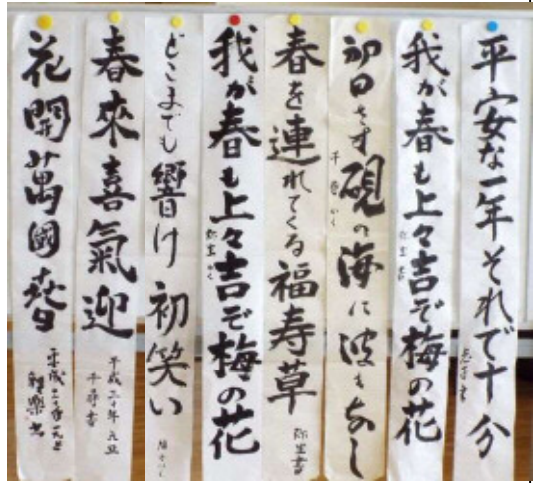 平安な一年それで十分
我が春も上々吉ぞ梅の花
弥生書
初日さす硯の海に波もなし
春を連れてくる福寿草
弥生書
我が春も上々吉ぞ梅の花
弥生かく
どこまでも響け初笑い
春來喜氣迎
平成二十年元旦
千尋書
花開萬國春